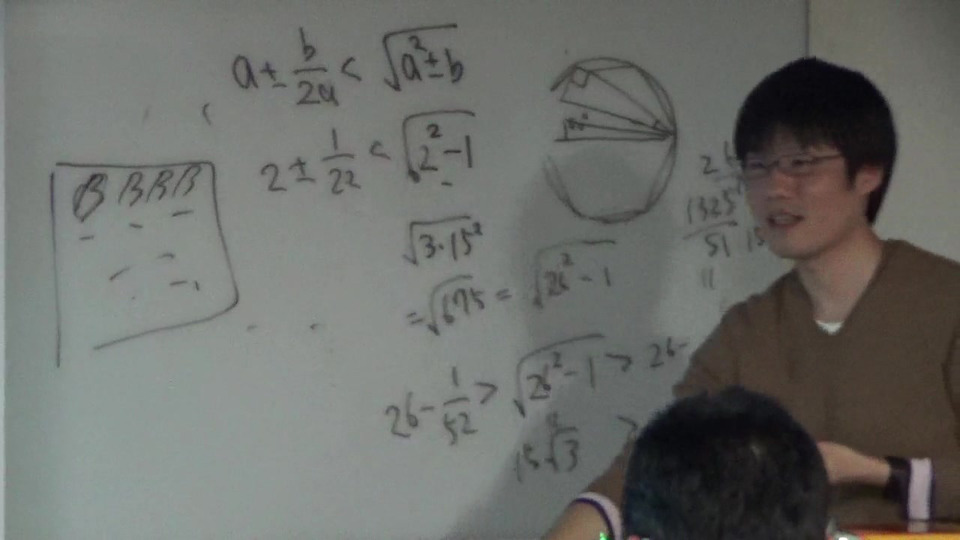 a ± b/2a < √a² ± b
2 ± 1/22 < √2² - 1
B B B B
√3·15²
= √675 = √26² - 1
26 - 1/52 > √26² - 1 > 26 -
15√3 >
1325
51 15
11